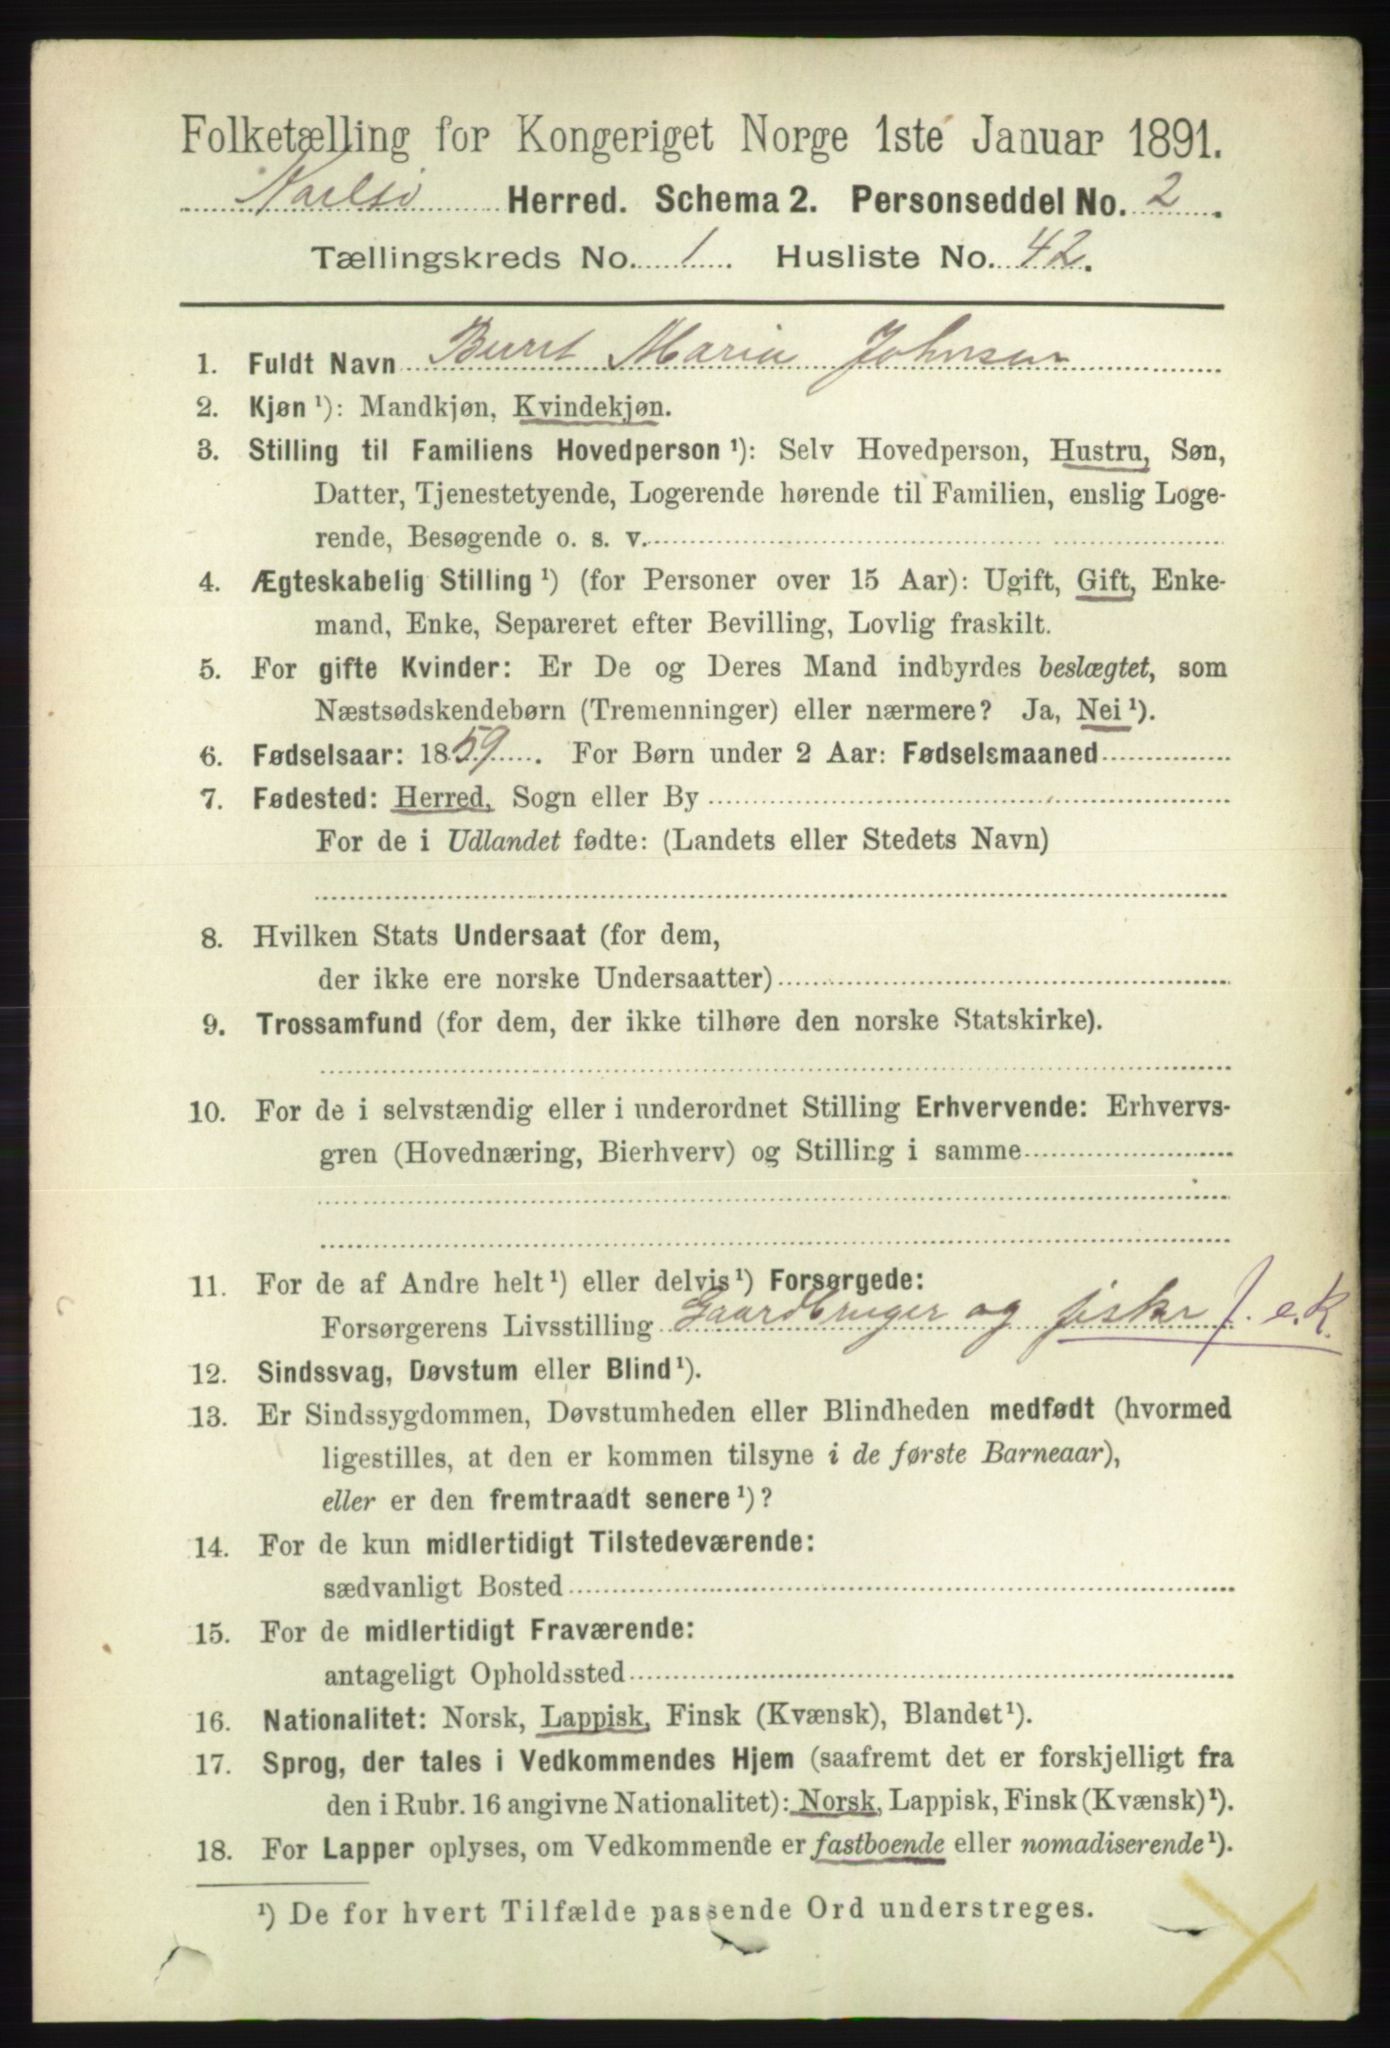 Folketælling for Kongeriget Norge 1ste Januar 1891.
Karlsø Herred. Schema 2. Personseddel No. 2.
Tællingskreds No. 1. Husliste No. 42.
1. Fuldt Navn Berit Maria Johnsen
2. Kjøn ¹): Mandkjøn, Kvindekjøn.
3. Stilling til Familiens Hovedperson ¹): Selv Hovedperson, Hustru, Søn,
Datter, Tjenestetyende, Logerende hørende til Familien, enslig Loge-
rende, Besøgende o. s. v.
4. Ægteskabelig Stilling ¹) (for Personer over 15 Aar): Ugift, Gift, Enke-
mand, Enke, Separeret efter Bevilling, Lovlig fraskilt.
5. For gifte Kvinder: Er De og Deres Mand indbyrdes beslægtet, som
Næstsødskendebørn (Tremenninger) eller nærmere? Ja, Nei ¹).
6. Fødselsaar: 1859. For Børn under 2 Aar: Fødselsmaaned
7. Fødested: Herred, Sogn eller By
For de i Udlandet fødte: (Landets eller Stedets Navn)
8. Hvilken Stats Undersaat (for dem,
der ikke ere norske Undersaatter)
9. Trossamfund (for dem, der ikke tilhøre den norske Statskirke).
10. For de i selvstændig eller i underordnet Stilling Erhvervende: Erhvervs-
gren (Hovednæring, Bierhverv) og Stilling i samme
11. For de af Andre helt ¹) eller delvis ¹) Forsørgede:
Forsørgerens Livsstilling Gaardbruger og fisker f. e.K.
12. Sindssvag, Døvstum eller Blind ¹).
13. Er Sindssygdommen, Døvstumheden eller Blindheden medfødt (hvormed
ligestilles, at den er kommen tilsyne i de første Barneaar),
eller er den fremtraadt senere ¹)?
14. For de kun midlertidigt Tilstedeværende:
sædvanligt Bosted
15. For de midlertidigt Fraværende:
antageligt Opholdssted
16. Nationalitet: Norsk, Lappisk, Finsk (Kvænsk), Blandet ¹).
17. Sprog, der tales i Vedkommendes Hjem (saafremt det er forskjelligt fra
den i Rubr. 16 angivne Nationalitet): Norsk, Lappisk, Finsk (Kvænsk) ¹).
18. For Lapper oplyses, om Vedkommende er fastboende eller nomadiserende ¹).
¹) De for hvert Tilfælde passende Ord understreges.